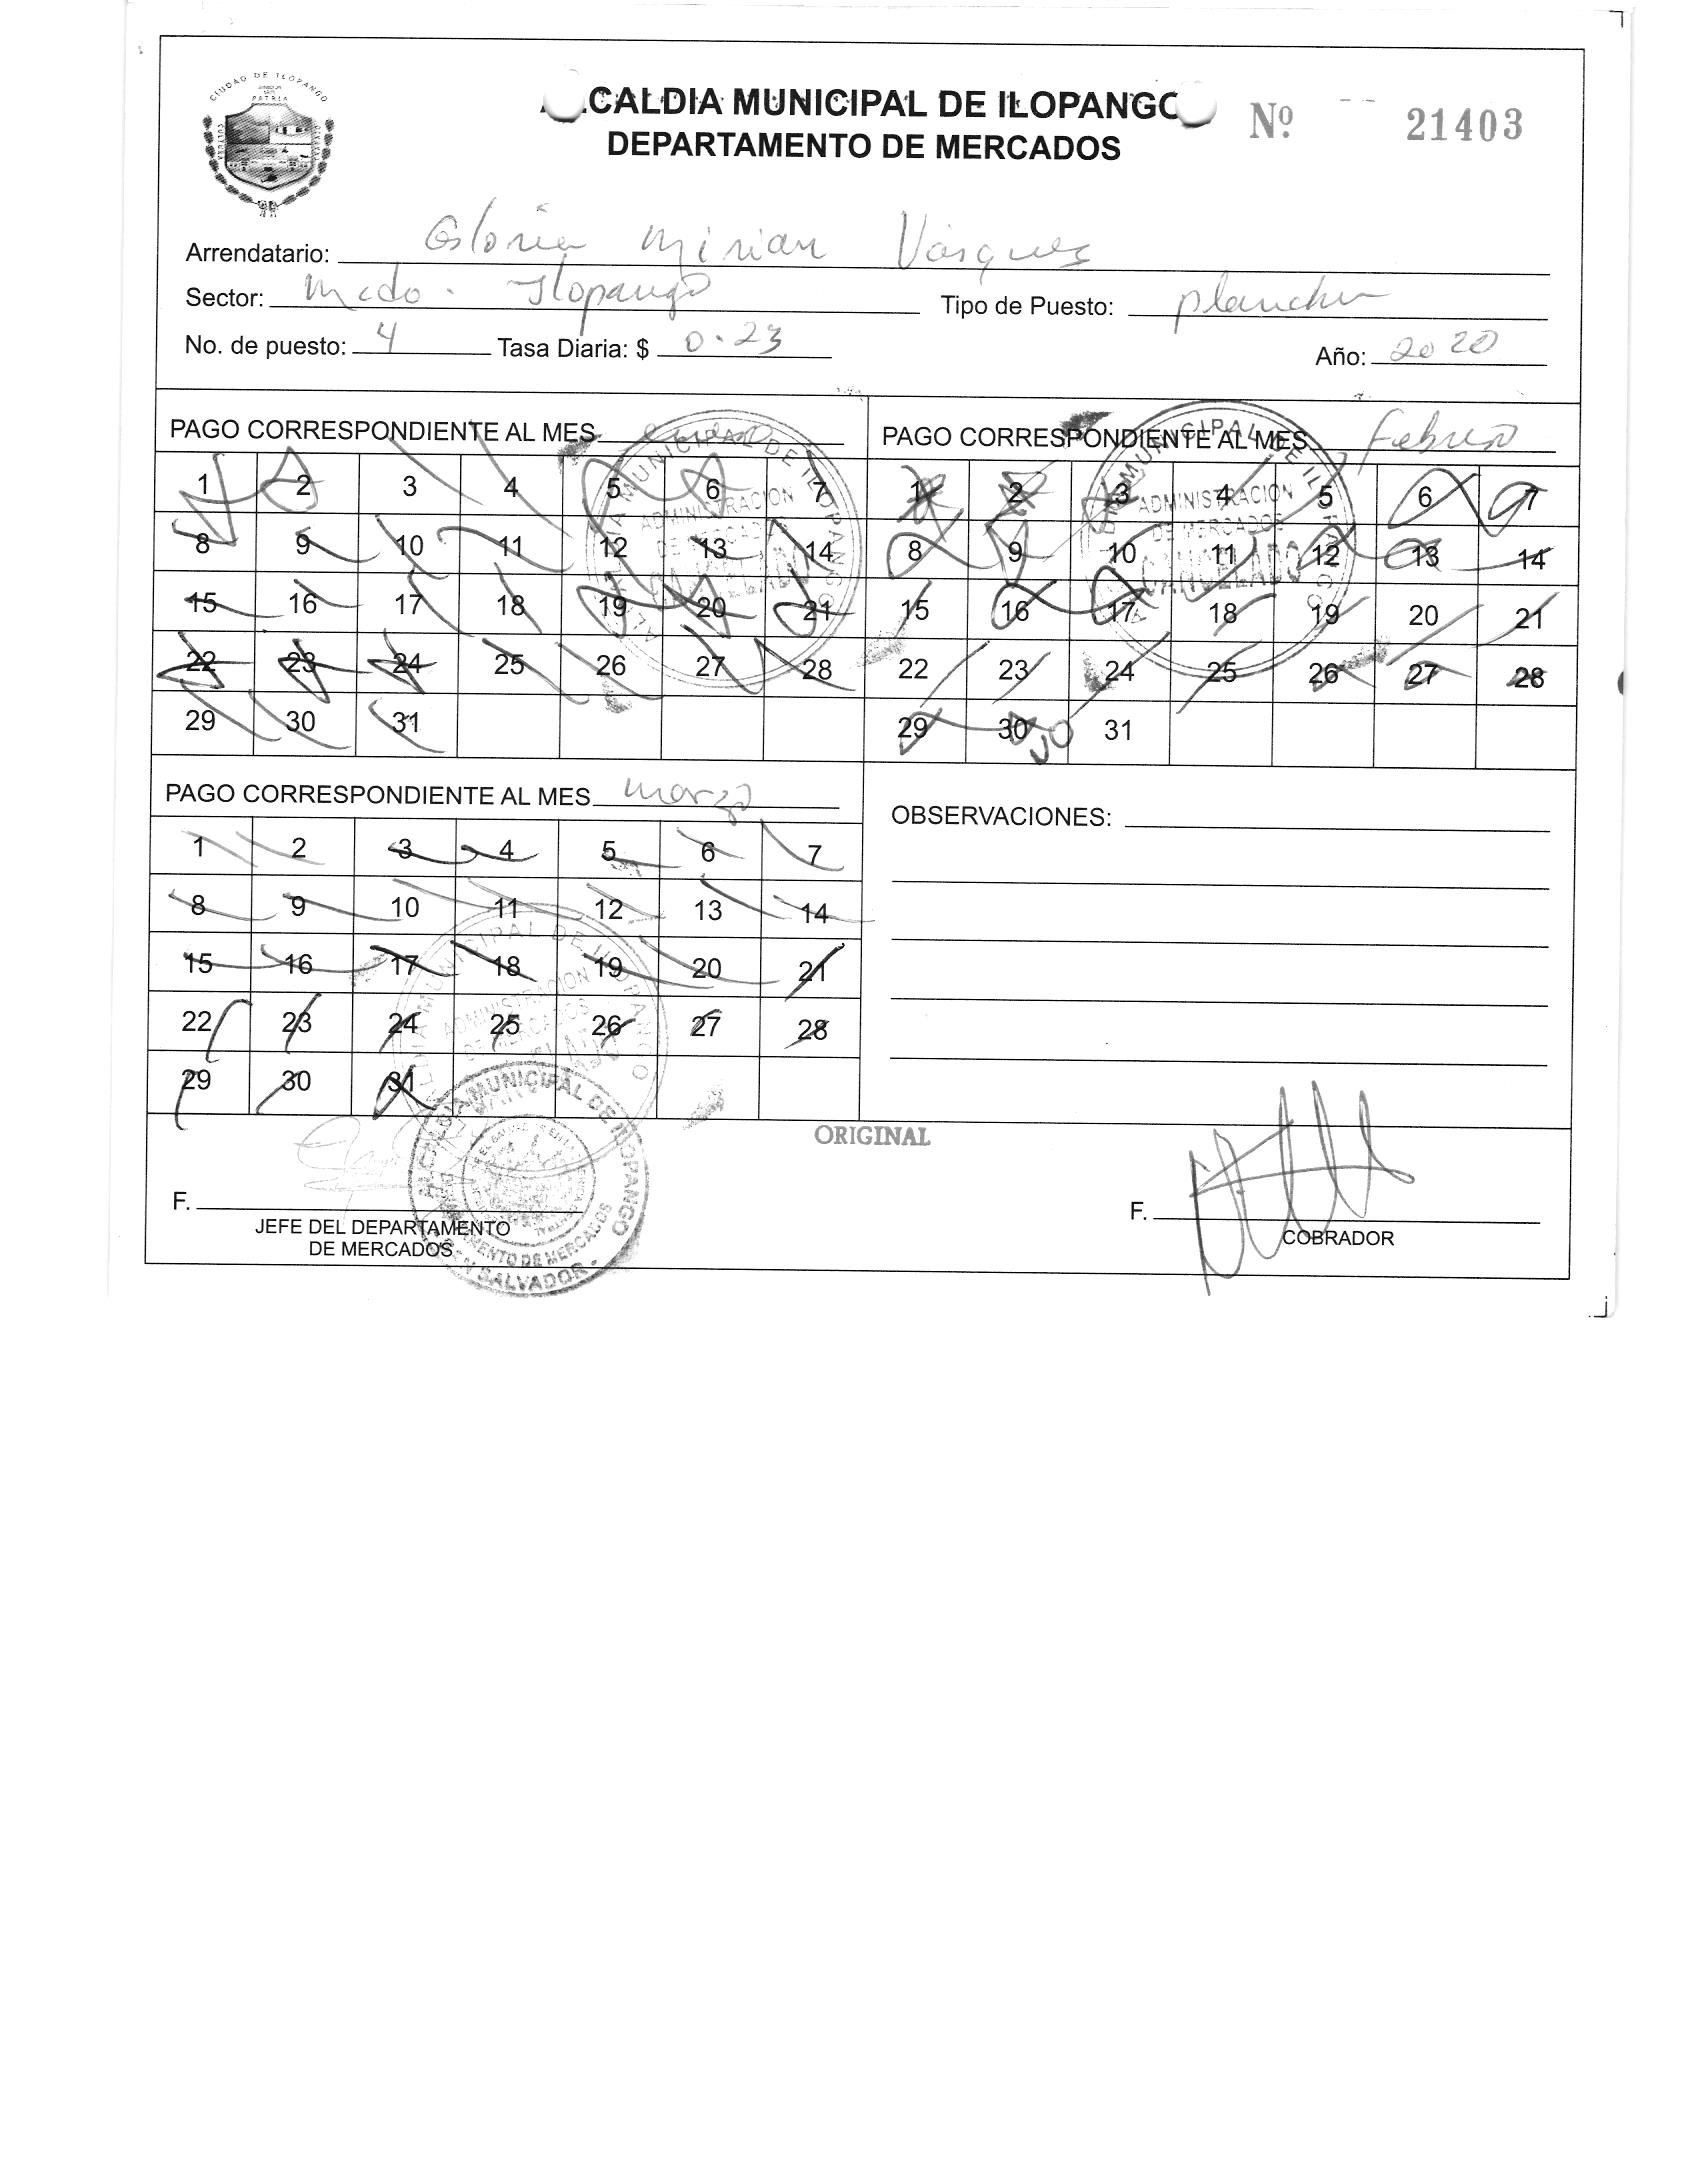 CIUDAD DE ILOPANGO
PATRIA
ALCALDIA MUNICIPAL DE ILOPANGO
DEPARTAMENTO DE MERCADOS
Nº 21403
Arrendatario: Gloria Mirian Vásquez
Sector: Mcdo. Ilopango Tipo de Puesto: plancha
No. de puesto: 4 Tasa Diaria: $ 0.23 Año: 2020
PAGO CORRESPONDIENTE AL MES
1 2 3 4 5 6 7
8 9 10 11 12 13 14
15 16 17 18 19 20 21
22 23 24 25 26 27 28
29 30 31
ALCALDIA MUNICIPAL DE ILOPANGO
ADMINISTRACION
DE MERCADOS
CANCELADO
PAGO CORRESPONDIENTE AL MES Febrero
1 2 3 4 5 6 7
8 9 10 11 12 13 14
15 16 17 18 19 20 21
22 23 24 25 26 27 28
29 30 31
ALCALDIA MUNICIPAL DE ILOPANGO
ADMINISTRACION
DE MERCADOS
CANCELADO
PAGO CORRESPONDIENTE AL MES marzo
1 2 3 4 5 6 7
8 9 10 11 12 13 14
15 16 17 18 19 20 21
22 23 24 25 26 27 28
29 30 31
ALCALDIA MUNICIPAL DE ILOPANGO
ADMINISTRACION
DE MERCADOS
OBSERVACIONES:
ORIGINAL
F.
JEFE DEL DEPARTAMENTO
DE MERCADOS
ALCALDIA MUNICIPAL DE ILOPANGO
DEPARTAMENTO DE MERCADOS
SAN SALVADOR
F.
COBRADOR